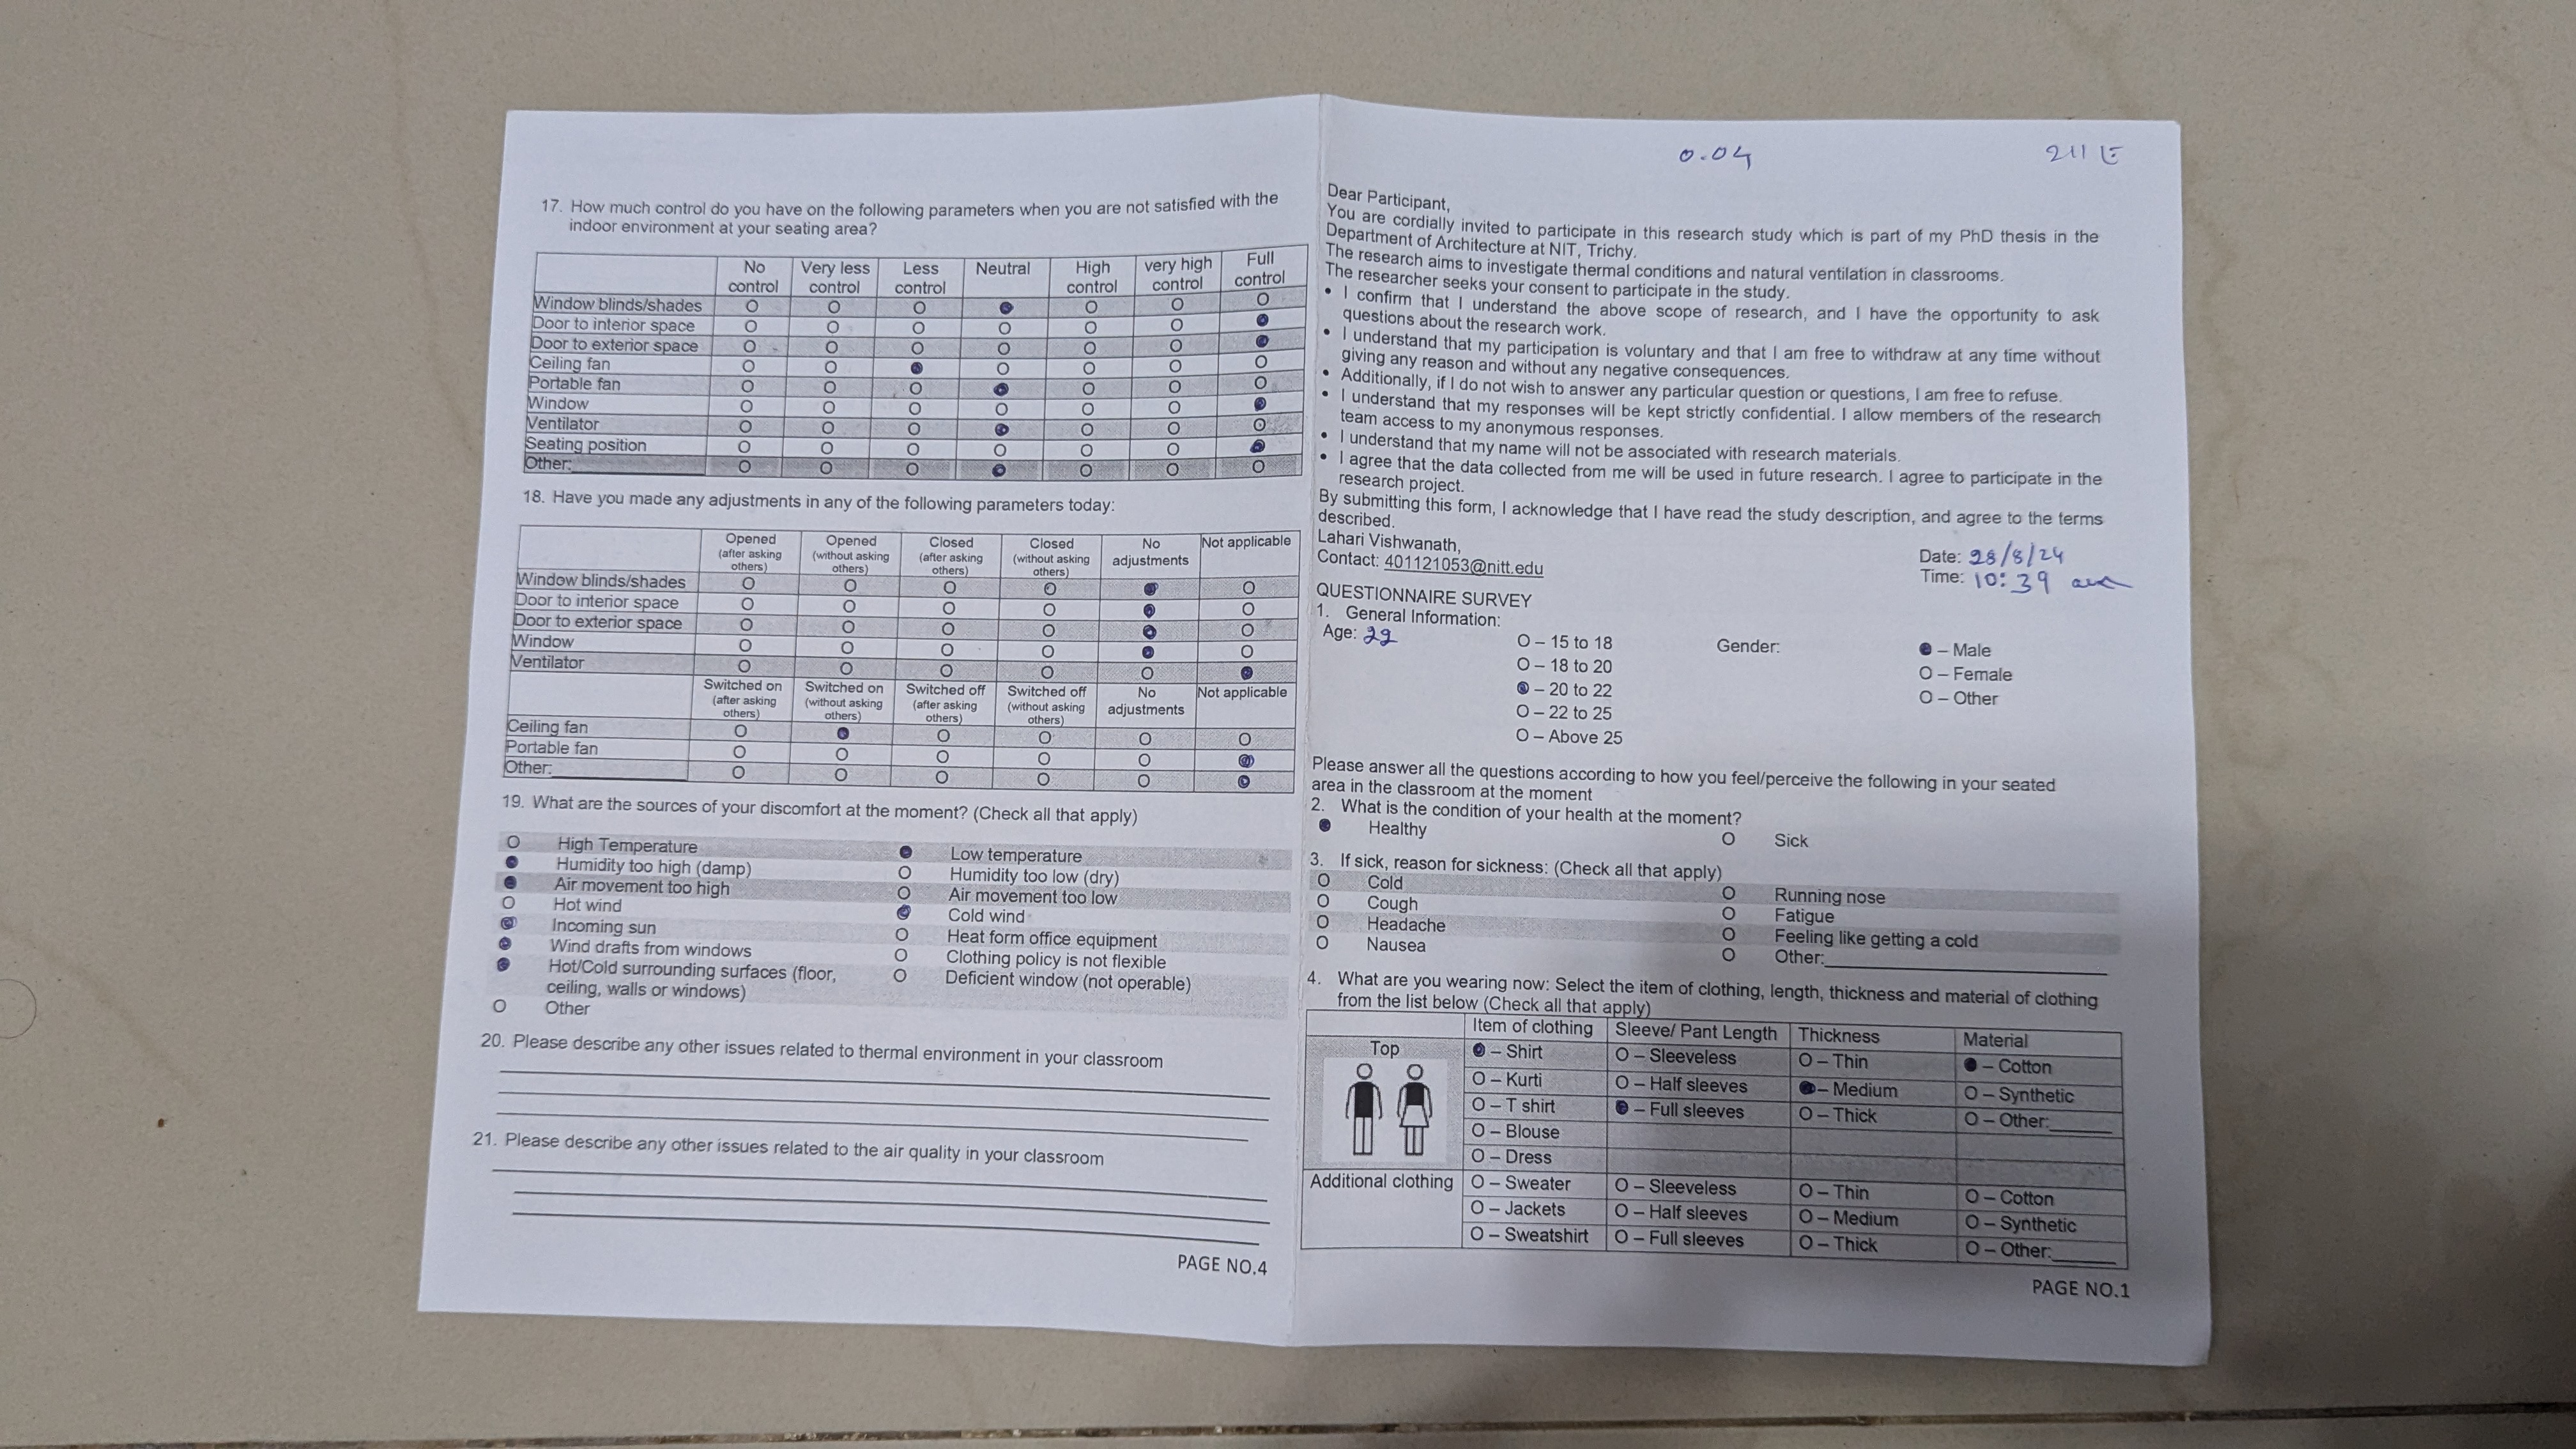 17. How much control do you have on the following parameters when you are not satisfied with the
indoor environment at your seating area?
No control Very less control Less control Neutral High control very high control Full control
Window blinds/shades O O O ● O O O
Door to interior space O O O O O O ●
Door to exterior space O O O O O O ●
Ceiling fan O O ● O O O O
Portable fan O O O ● O O O
Window O O O O O O ●
Ventilator O O O ● O O O
Seating position O O O O O O ●
Other: O O O ● O O O
18. Have you made any adjustments in any of the following parameters today:
Opened (after asking others) Opened (without asking others) Closed (after asking others) Closed (without asking others) No adjustments Not applicable
Window blinds/shades O O O O ● O
Door to interior space O O O O ● O
Door to exterior space O O O O ● O
Window O O O O ● O
Ventilator O O O O O ●
Switched on (after asking others) Switched on (without asking others) Switched off (after asking others) Switched off (without asking others) No adjustments Not applicable
Ceiling fan O ● O O O O
Portable fan O O O O O ●
Other: O O O O O ●
19. What are the sources of your discomfort at the moment? (Check all that apply)
O High Temperature ● Low temperature
● Humidity too high (damp) O Humidity too low (dry)
● Air movement too high O Air movement too low
O Hot wind ● Cold wind
● Incoming sun O Heat form office equipment
● Wind drafts from windows O Clothing policy is not flexible
● Hot/Cold surrounding surfaces (floor, O Deficient window (not operable)
ceiling, walls or windows)
O Other
20. Please describe any other issues related to thermal environment in your classroom
21. Please describe any other issues related to the air quality in your classroom
PAGE NO.4
0.04 211 E
Dear Participant,
You are cordially invited to participate in this research study which is part of my PhD thesis in the
Department of Architecture at NIT, Trichy.
The research aims to investigate thermal conditions and natural ventilation in classrooms.
The researcher seeks your consent to participate in the study.
• I confirm that I understand the above scope of research, and I have the opportunity to ask
questions about the research work.
• I understand that my participation is voluntary and that I am free to withdraw at any time without
giving any reason and without any negative consequences.
• Additionally, if I do not wish to answer any particular question or questions, I am free to refuse.
• I understand that my responses will be kept strictly confidential. I allow members of the research
team access to my anonymous responses.
• I understand that my name will not be associated with research materials.
• I agree that the data collected from me will be used in future research. I agree to participate in the
research project.
By submitting this form, I acknowledge that I have read the study description, and agree to the terms
described.
Lahari Vishwanath,
Contact: 401121053@nitt.edu
Date: 28/8/24
Time: 10:39 am
QUESTIONNAIRE SURVEY
1. General Information:
Age: 22 O – 15 to 18 Gender: ● – Male
O – 18 to 20 O – Female
● – 20 to 22 O – Other
O – 22 to 25
O – Above 25
Please answer all the questions according to how you feel/perceive the following in your seated
area in the classroom at the moment
2. What is the condition of your health at the moment?
● Healthy O Sick
3. If sick, reason for sickness: (Check all that apply)
O Cold O Running nose
O Cough O Fatigue
O Headache O Feeling like getting a cold
O Nausea O Other:
4. What are you wearing now: Select the item of clothing, length, thickness and material of clothing
from the list below (Check all that apply)
Item of clothing Sleeve/ Pant Length Thickness Material
Top ● – Shirt O – Sleeveless O – Thin ● – Cotton
O – Kurti O – Half sleeves ● – Medium O – Synthetic
O – T shirt ● – Full sleeves O – Thick O – Other:
O – Blouse
O – Dress
Additional clothing O – Sweater O – Sleeveless O – Thin O – Cotton
O – Jackets O – Half sleeves O – Medium O – Synthetic
O – Sweatshirt O – Full sleeves O – Thick O – Other:
PAGE NO.1